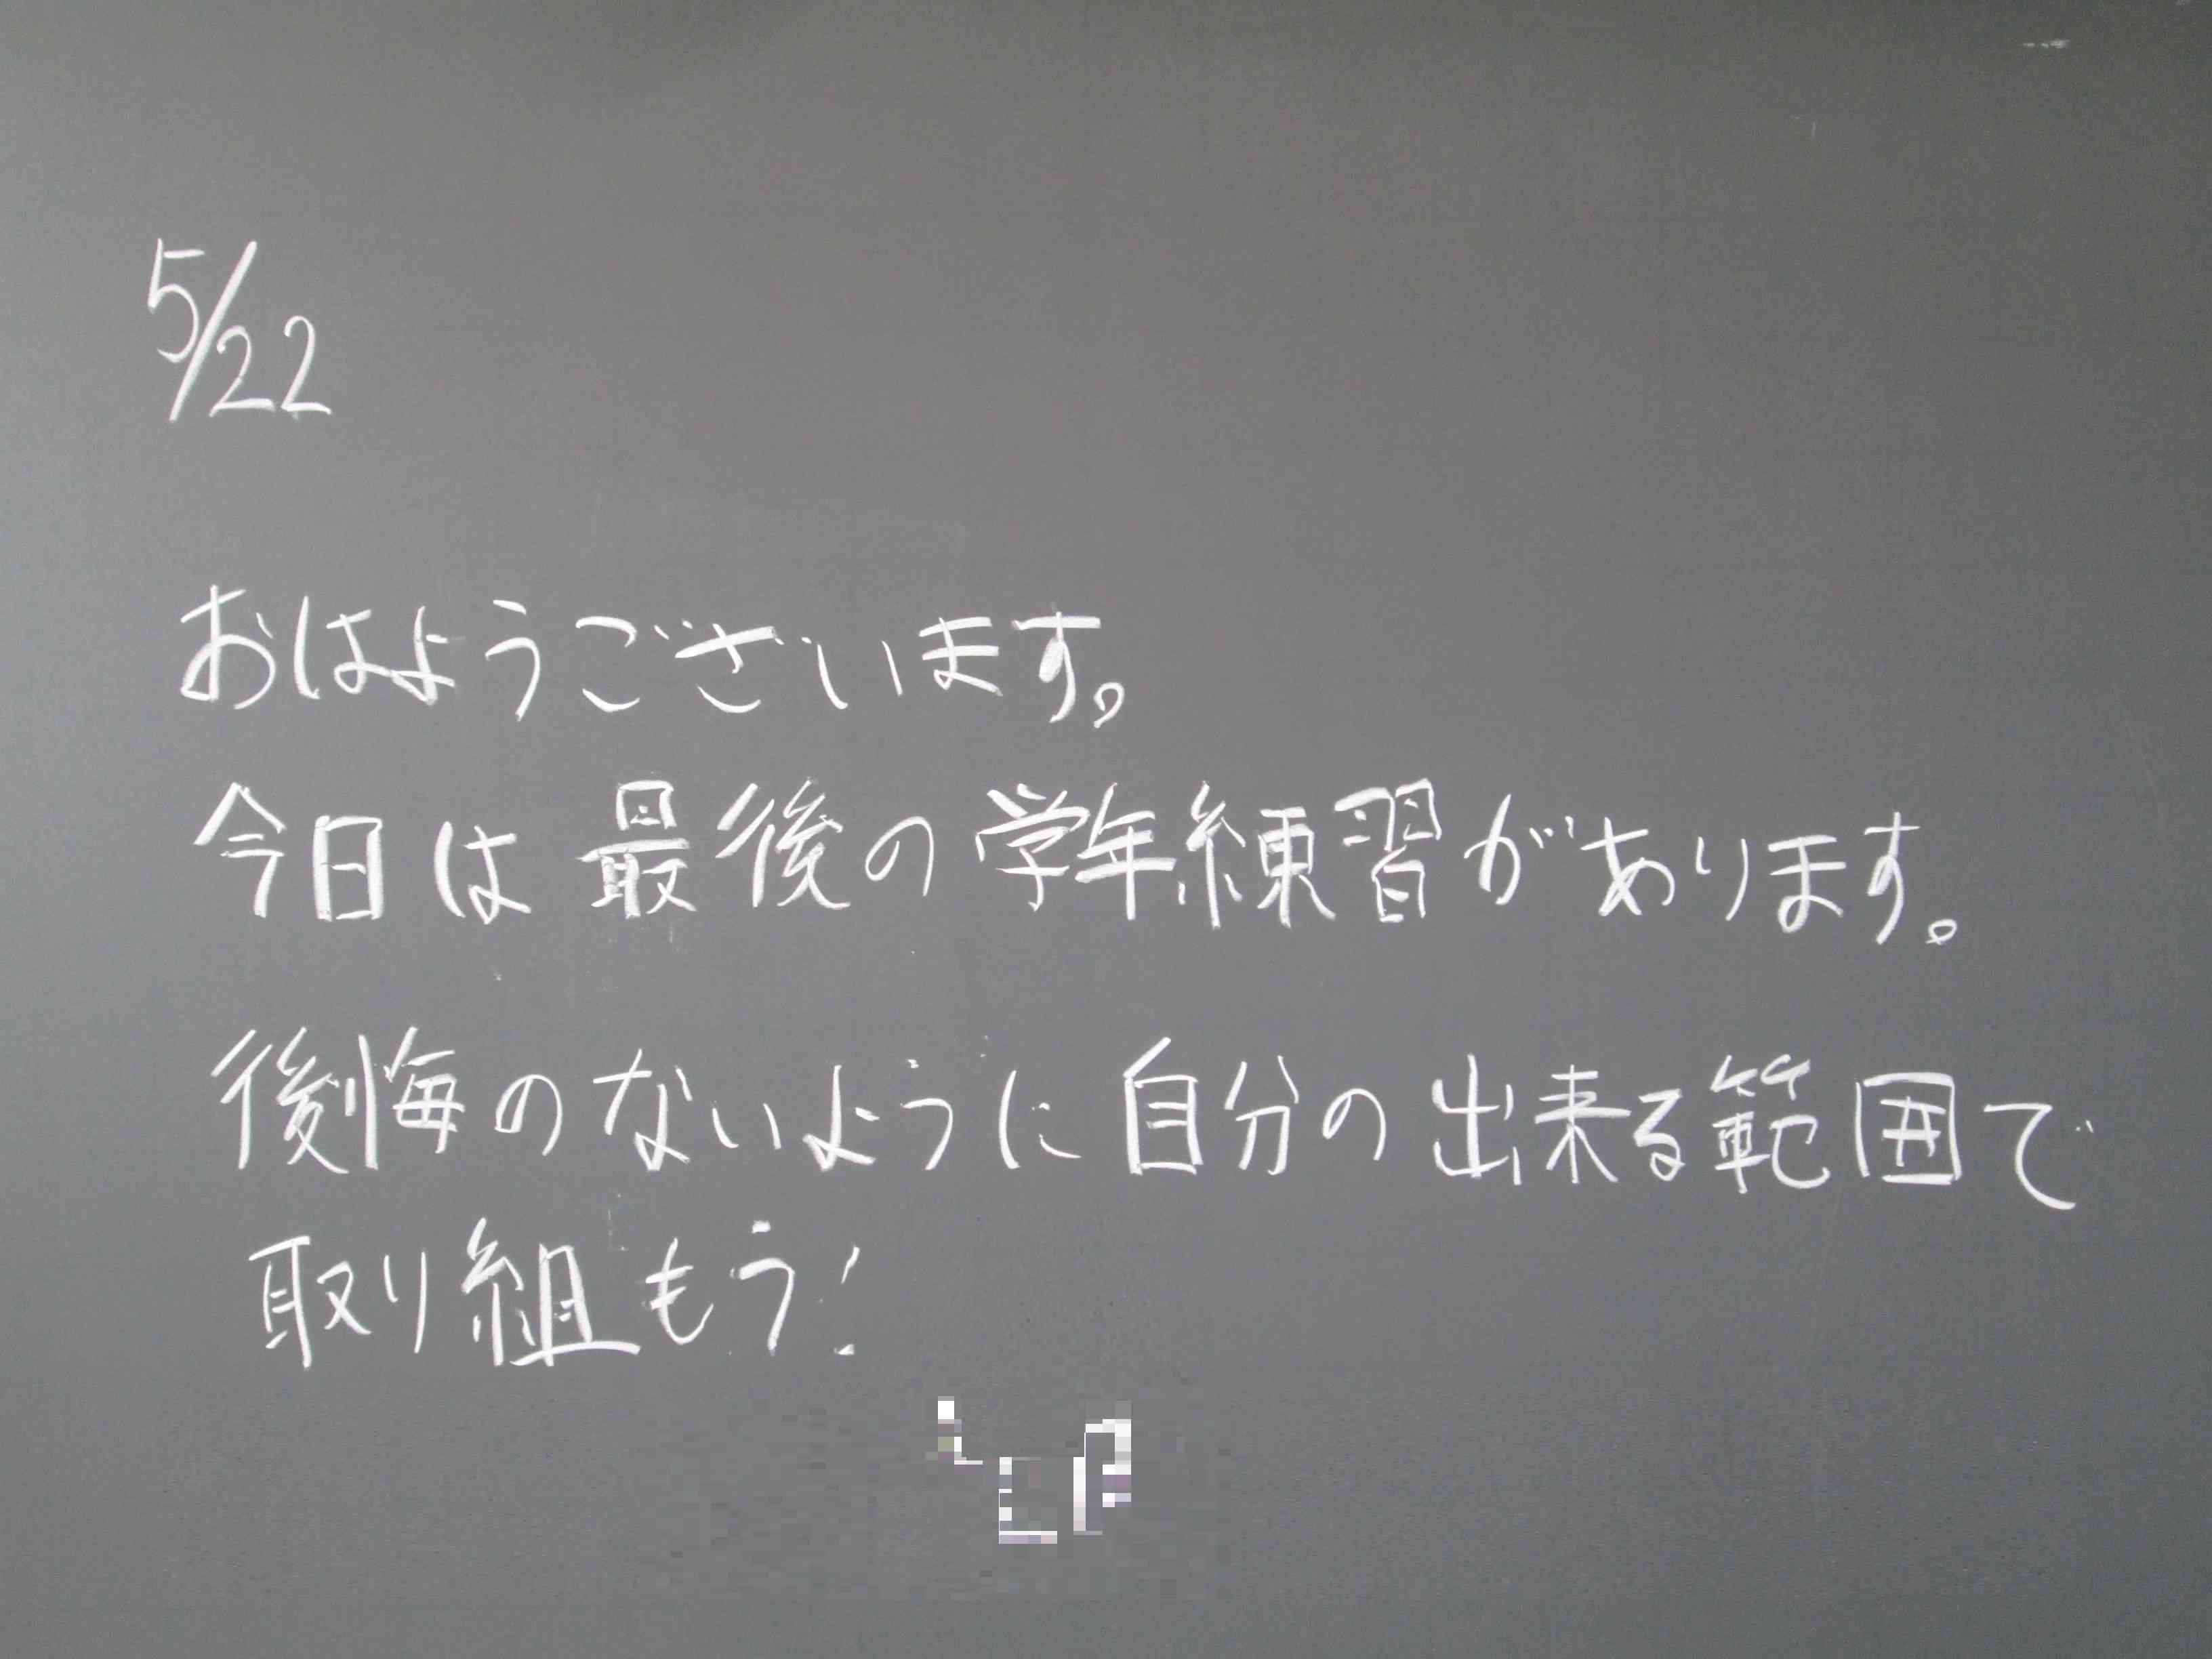 5/22
おはようございます。
今日は最後の学年練習があります。
後悔のないように自分の出来る範囲で
取り組もう!